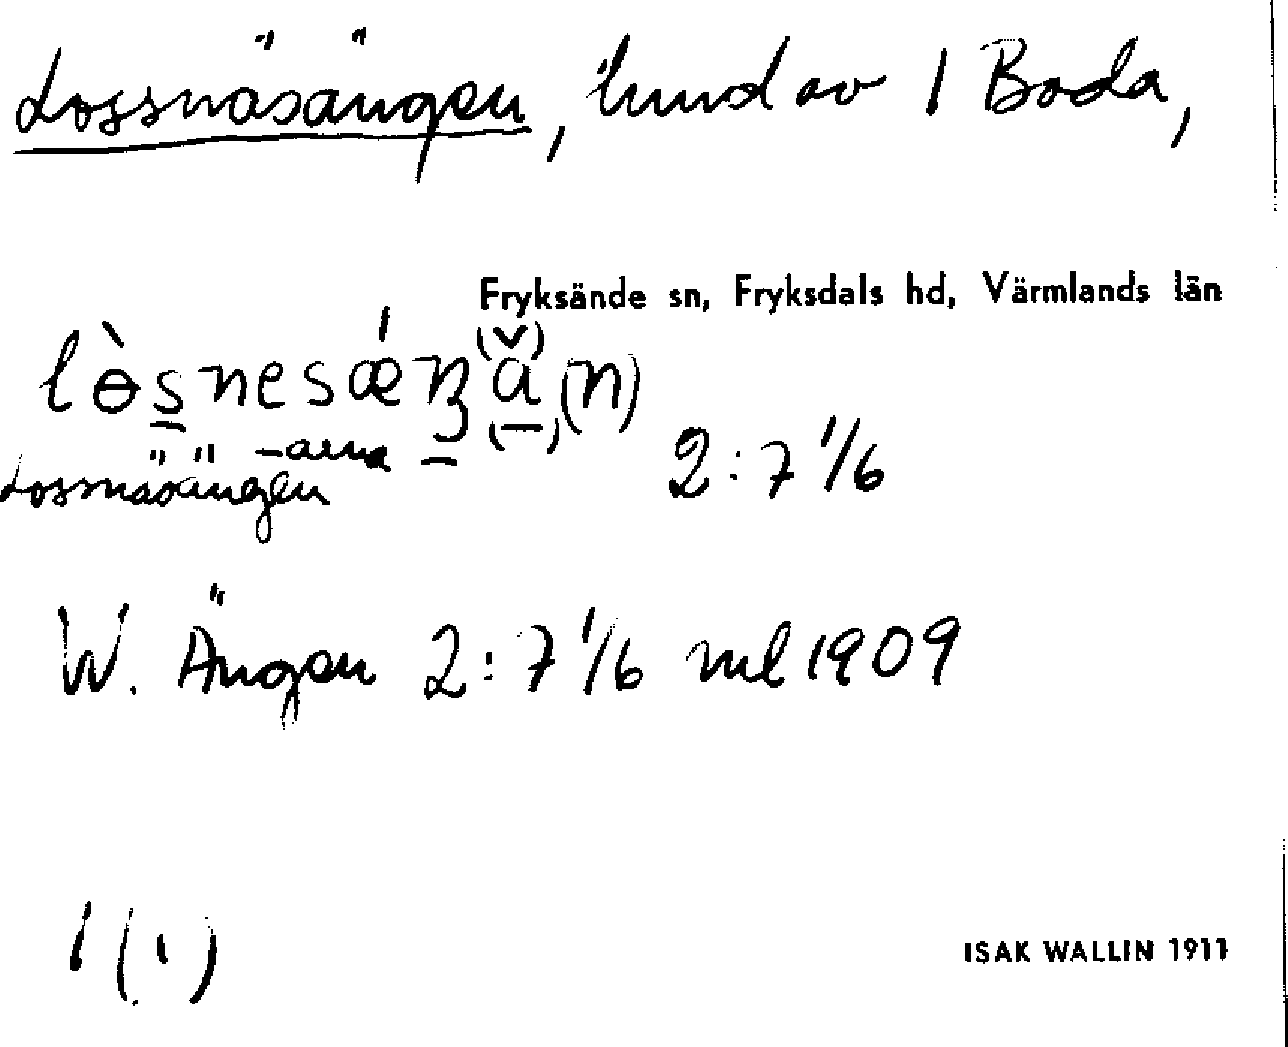 Lossnäsängen, hmd av 1 Boda,
Fryksände sn, Fryksdals hd, Värmlands län
lɵ̀snesǽŋa(n)
-arna
Lossnäsängen
2:7 1/6
W. Ängen 2:7 1/6 ml 1909
1 (1)
ISAK WALLIN 1911